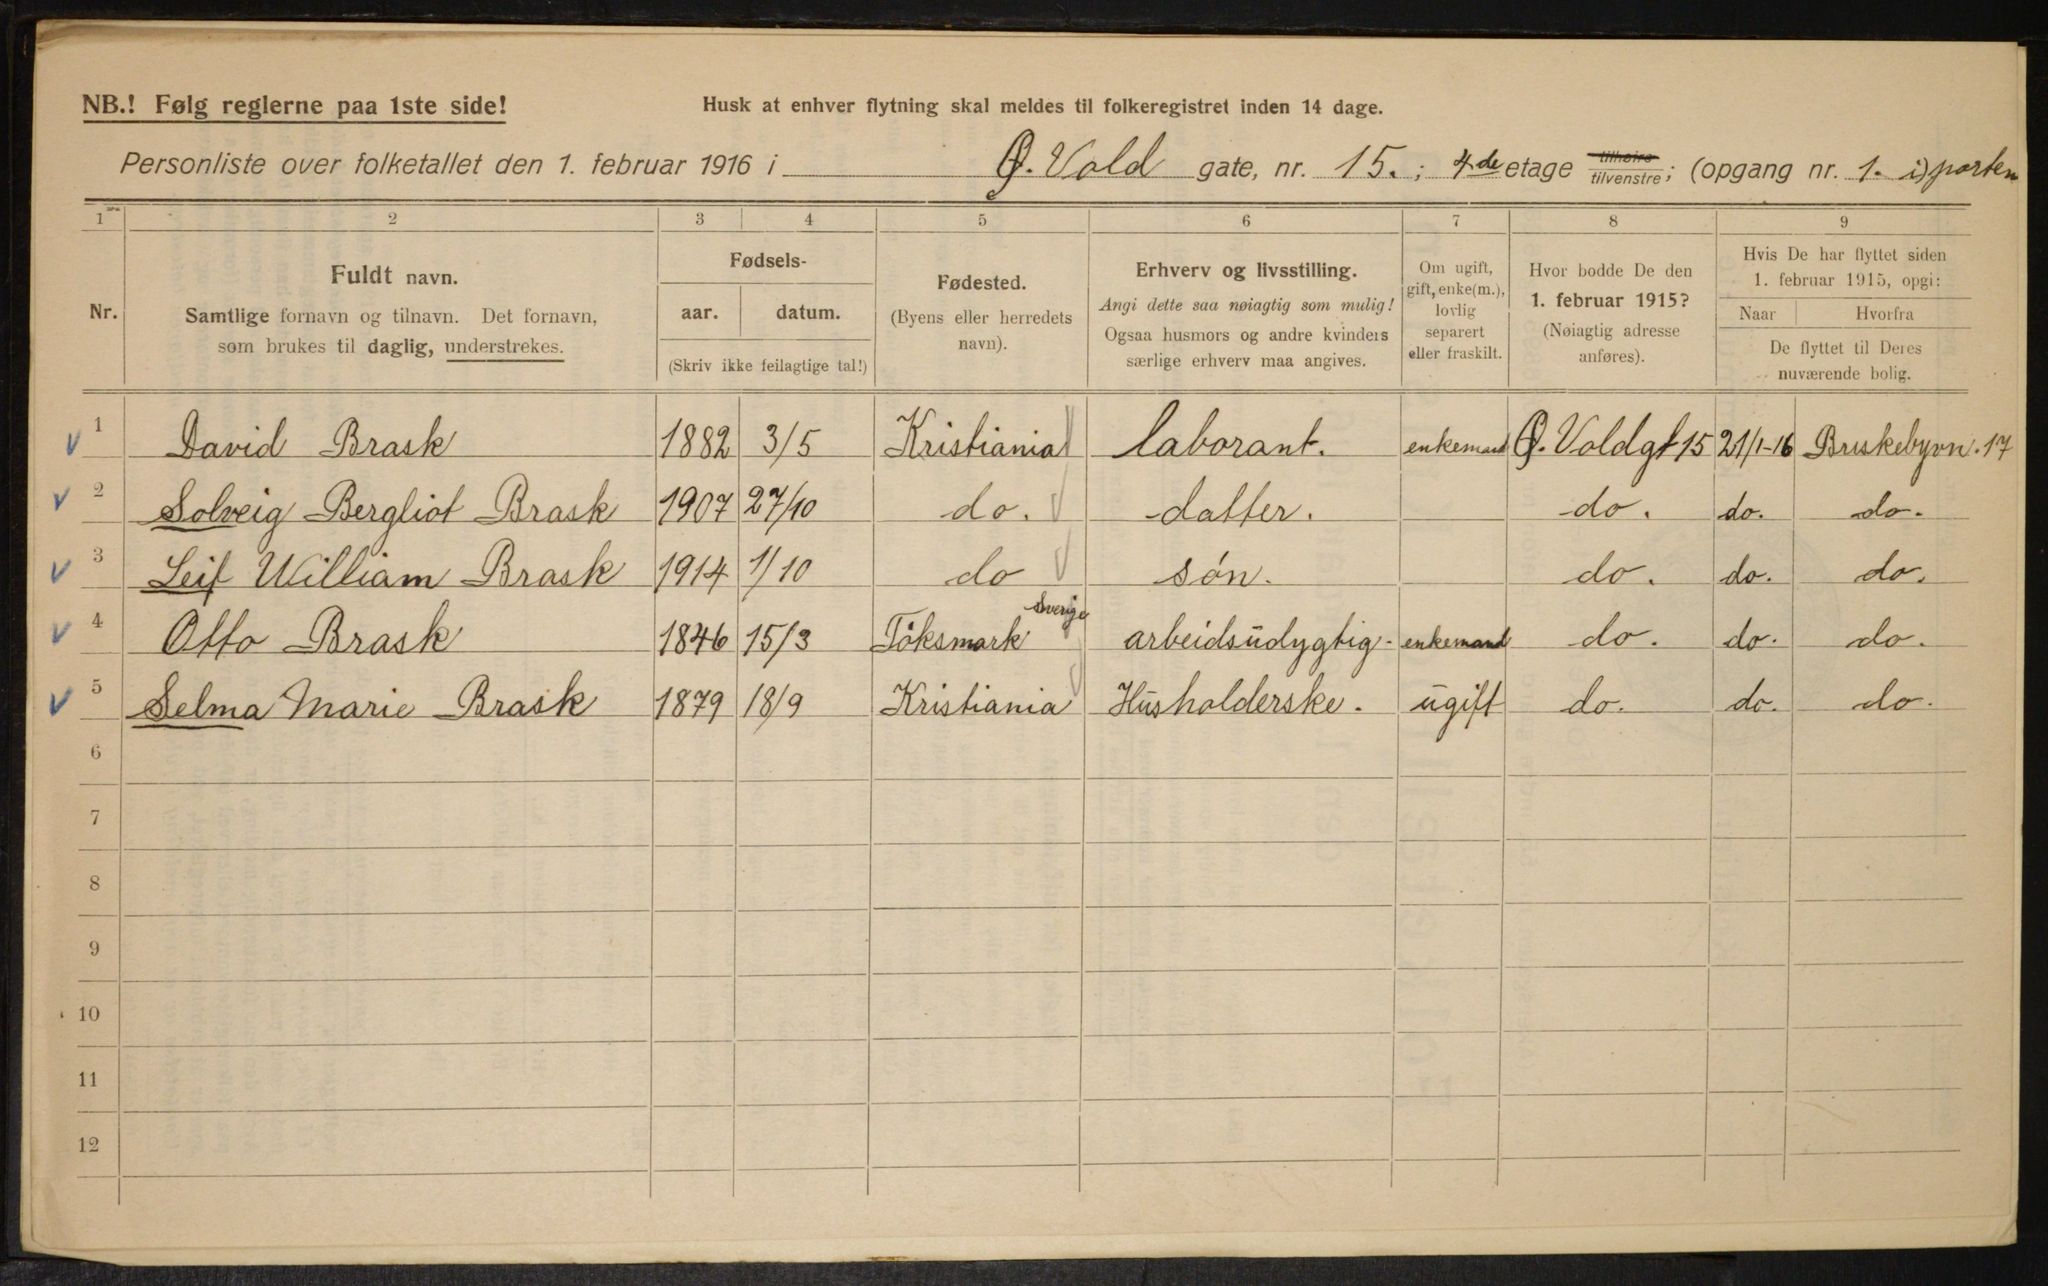 NB.! Følg reglerne paa 1ste side! Husk at enhver flytning skal meldes til folkeregistret inden 14 dage.
Personliste over folketallet den 1. februar 1916 i Ø. Vold gate, nr. 15. ; 4de etage tilhøire tilvenstre ; (opgang nr. 1. i) porten
1 2 3 4 5 6 7 8 9
Nr.
Fuldt navn.
Samtlige fornavn og tilnavn. Det fornavn,
som brukes til daglig, understrekes.
Fødsels-
aar. datum.
(Skriv ikke feilagtige tal!)
Fødested.
(Byens eller herredets
navn).
Erhverv og livsstilling.
Angi dette saa nøiagtig som mulig!
Ogsaa husmors og andre kvinders
særlige erhverv maa angives.
Om ugift,
gift, enke(m.),
lovlig
separert
eller fraskilt.
Hvor bodde De den
1. februar 1915?
(Nøiagtig adresse
anføres).
Hvis De har flyttet siden
1. februar 1915, opgi:
Naar Hvorfra
De flyttet til Deres
nuværende bolig.
1 David Brask 1882 3/5 Kristiania laborant. enkemand Ø. Voldgt 15 21/1-16 Briskebyvn. 17
2 Solveig Bergliot Brask 1907 27/10 do. datter. do. do. do.
3 Leif William Brask 1914 1/10 do søn. do. do. do.
4 Otto Brask 1846 15/3 Töksmark Sverige arbeidsudygtig. enkemand do. do. do.
5 Selma Marie Brask 1879 18/9 Kristiania Husholderske. ugift do. do. do.
6
7
8
9
10
11
12